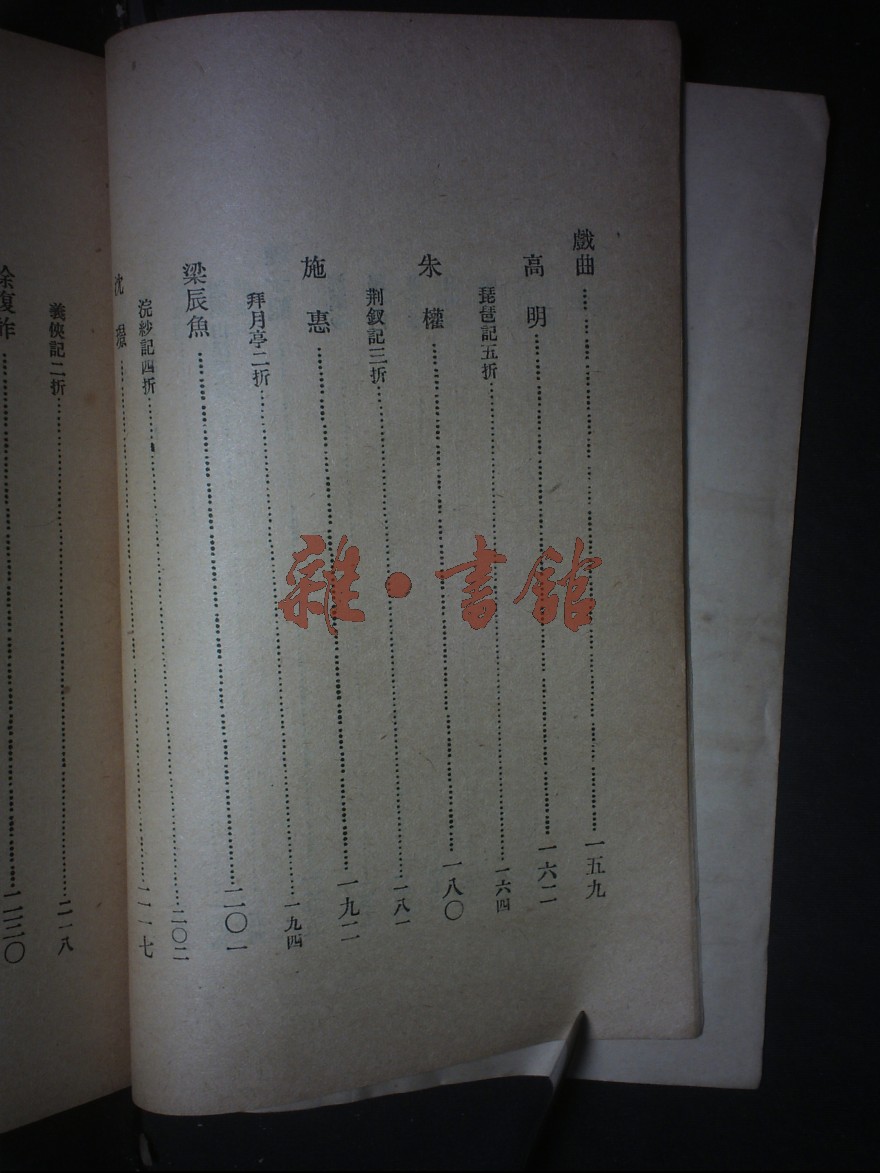 戲曲……一五九
高明……一六二
琵琶記五折……一六四
朱權……一八〇
荆釵記三折……一八一
施惠……一九二
拜月亭二折……一九四
梁辰魚……二〇一
浣紗記四折……二〇二
沈璟……二一七
義俠記二折……二一八
徐復祚……二二〇
雜·書館